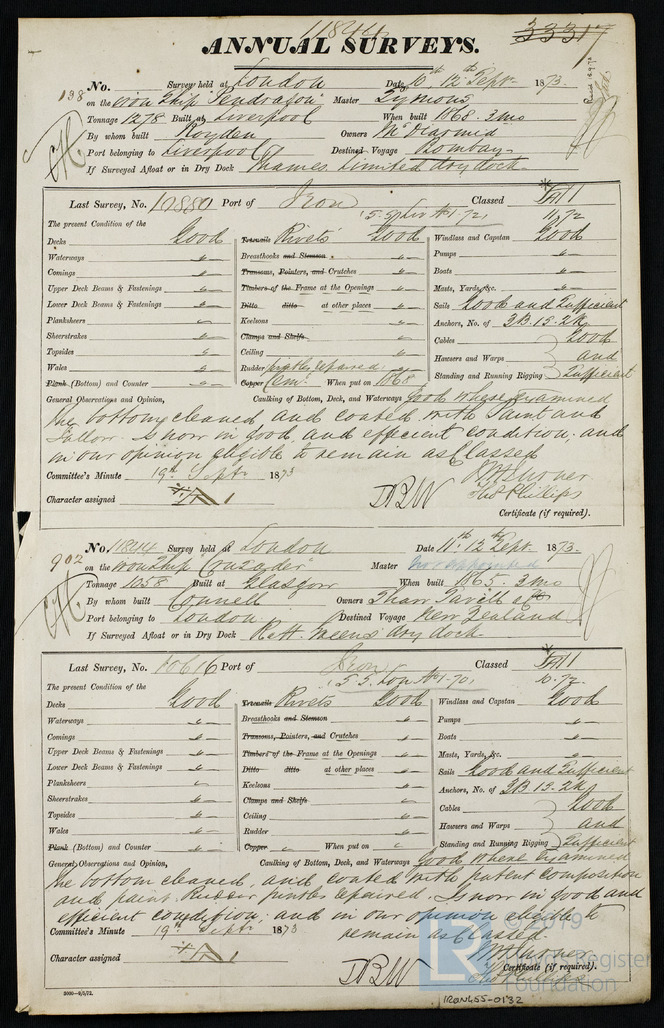 11844
33317
ANNUAL SURVEYS.
No. Survey held at London Date 6th 12th Sept. 1873.
138 on the iron Ship "Pendragon" Master Symons
Tonnage 1278 Built at Liverpool When built 1868. 3 mo
By whom built Royden Owners McDiarmid
Port belonging to Liverpool Destined Voyage Bombay
If Surveyed Afloat or in Dry Dock Thames Limited dry dock
Last Survey, No. 10880 Port of Iron Classed
11,72
The present Condition of the
Decks Good Treenails Rivets Good Windlass and Capstan Good
Waterways " Breasthooks and Stemson " Pumps "
Comings " Transoms, Pointers, and Crutches " Boats "
Upper Deck Beams & Fastenings " Timbers of the Frame at the Openings " Masts, Yards, &c. "
Lower Deck Beams & Fastenings " Ditto ditto at other places " Sails Good and Sufficient
Planksheers " Keelsons " Anchors, No. of 3B.1S.2K
Sheerstrakes " Clamps and Shelfs Cables Good
Topsides " Ceiling " Hawsers and Warps and
Wales " Rudder pintles repaired Standing and Running Rigging Sufficient
Plank (Bottom) and Counter " Copper Cemt. When put on 1868
General Observations and Opinion, Caulking of Bottom, Deck, and Waterways Good where examined
The bottom cleaned and coated with Paint and
Tallow. Is now in good and efficient condition, and
in our opinion eligible to remain as Classed
Committee's Minute 19th Septr. 1873
Character assigned
Thos Phillips
Certificate (if required).
No. 11844 Survey held at London Date 11th. 12th Sept. 1873.
902 on the iron Ship "Crusader" Master Not appointed
Tonnage 1058 Built at Glasgow When built 1865. 3 mo
By whom built Connell Owners Shaw Savill & Co
Port belonging to London Destined Voyage New Zealand
If Surveyed Afloat or in Dry Dock dry dock
Last Survey, No. 10616 Port of Iron Classed
5 5. Lon A 1-70, 10,72
The present Condition of the
Decks Good Treenails Rivets Good Windlass and Capstan Good
Waterways " Breasthooks and Stemson " Pumps "
Comings " Transoms, Pointers, and Crutches " Boats "
Upper Deck Beams & Fastenings " Timbers of the Frame at the Openings " Masts, Yards, &c. "
Lower Deck Beams & Fastenings " Ditto ditto at other places " Sails Good and Sufficient
Planksheers " Keelsons " Anchors, No. of 3B.1S.2K
Sheerstrakes " Clamps and Shelfs Cables Good
Topsides " Ceiling " Hawsers and Warps and
Wales " Rudder " Standing and Running Rigging Sufficient
Plank (Bottom) and Counter " Copper " When put on "
General Observations and Opinion, Caulking of Bottom, Deck, and Waterways Good where examined
The bottom cleaned, and coated with patent composition
and paint. Rudder pintles repaired. Is now in good and
efficient condition, and in our opinion eligible to
remain as Classed.
Committee's Minute 19th Septr. 1873
Character assigned
Thos Phillips
Certificate (if required).
2000—9/5/72.
IRON455-0132
© 2019
LR
Lloyd's Register
Foundation